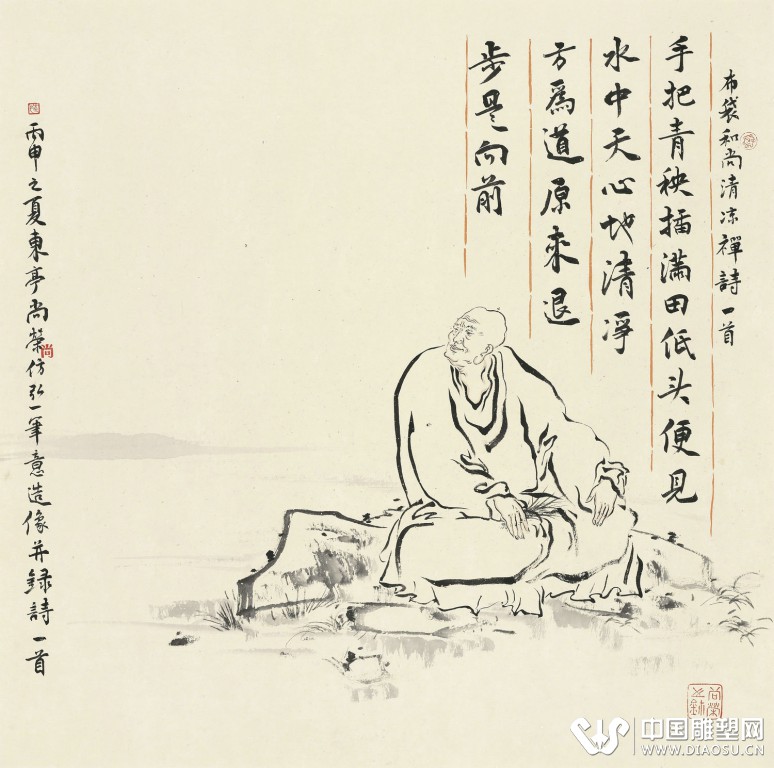 布袋和尚清凉禪詩一首
手把青秧插满田低头便見
水中天心地清净
方爲道原來退
步是向前
丙申之夏東亭尚榮仿弘一筆意造像并録詩一首
尚
中国雕塑网
WWW.DIAOSU.CN